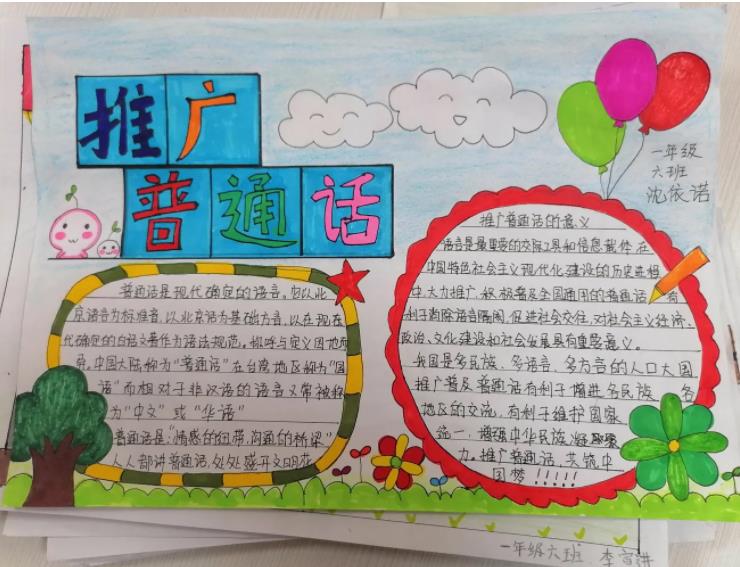 推广
普通话
一年级
六班
沈依诺
普通话是现代确定的语言。它以北
京语音为标准音,以北京话为基础方言,以在现在
代确定的白话文著作为语法规范。称呼与定义因地而
异。中国大陆称为“普通话”在台湾地区称为“国
语”而相对于非汉语的语言又常被称
为“中文”或“华语”
普通话是:“情感的纽带,沟通的桥梁”
人人都讲普通话,处处盛开文明花
推广普通话的意义
语言是最重要的交际工具和信息载体在
中国特色社会主义现代化建设的历史进程
中,大力推广,积极普及全国通用的普通话 有
利于消除语言隔阂,促进社会交往,对社会主义经济、
政治、文化建设和社会发展具有重要意义。
我国是多民族、多语言、多方言的人口大国
推广普及普通话有利于增进各民族 各
地区的交流,有利于维护国家
统一,增强中华民族凝聚
力。推广普通话,共筑中
国梦!!!!!
一年级六班 李